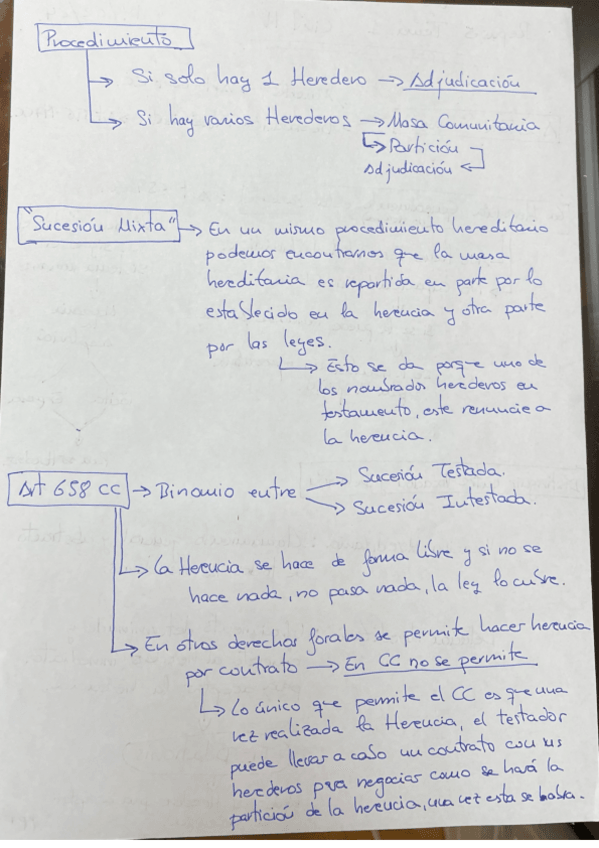 Procedimiento
Si solo hay 1 Heredero → Adjudicación
Si hay varios Herederos → Masa Comunitaria
Partición
Adjudicación
"Sucesión Mixta" → En un mismo procedimiento hereditario
podemos encontrarnos que la masa
hereditaria es repartida en parte por lo
establecido en la herencia y otra parte
por las leyes.
Esto se da porque uno de
los nombrados herederos en
testamento, este renuncie a
la herencia.
Art 658 CC → Binomio entre
Sucesión Testada.
Sucesión Intestada.
La Herencia se hace de forma libre y si no se
hace nada, no pasa nada, la ley lo cubre.
En otros derechos forales se permite hacer herencia
por contrato → En CC no se permite
Lo único que permite el CC es que una
vez realizada la Herencia, el testador
puede llevar a caso un contrato con sus
herederos para negociar como se hará la
partición de la herencia, una vez esta se